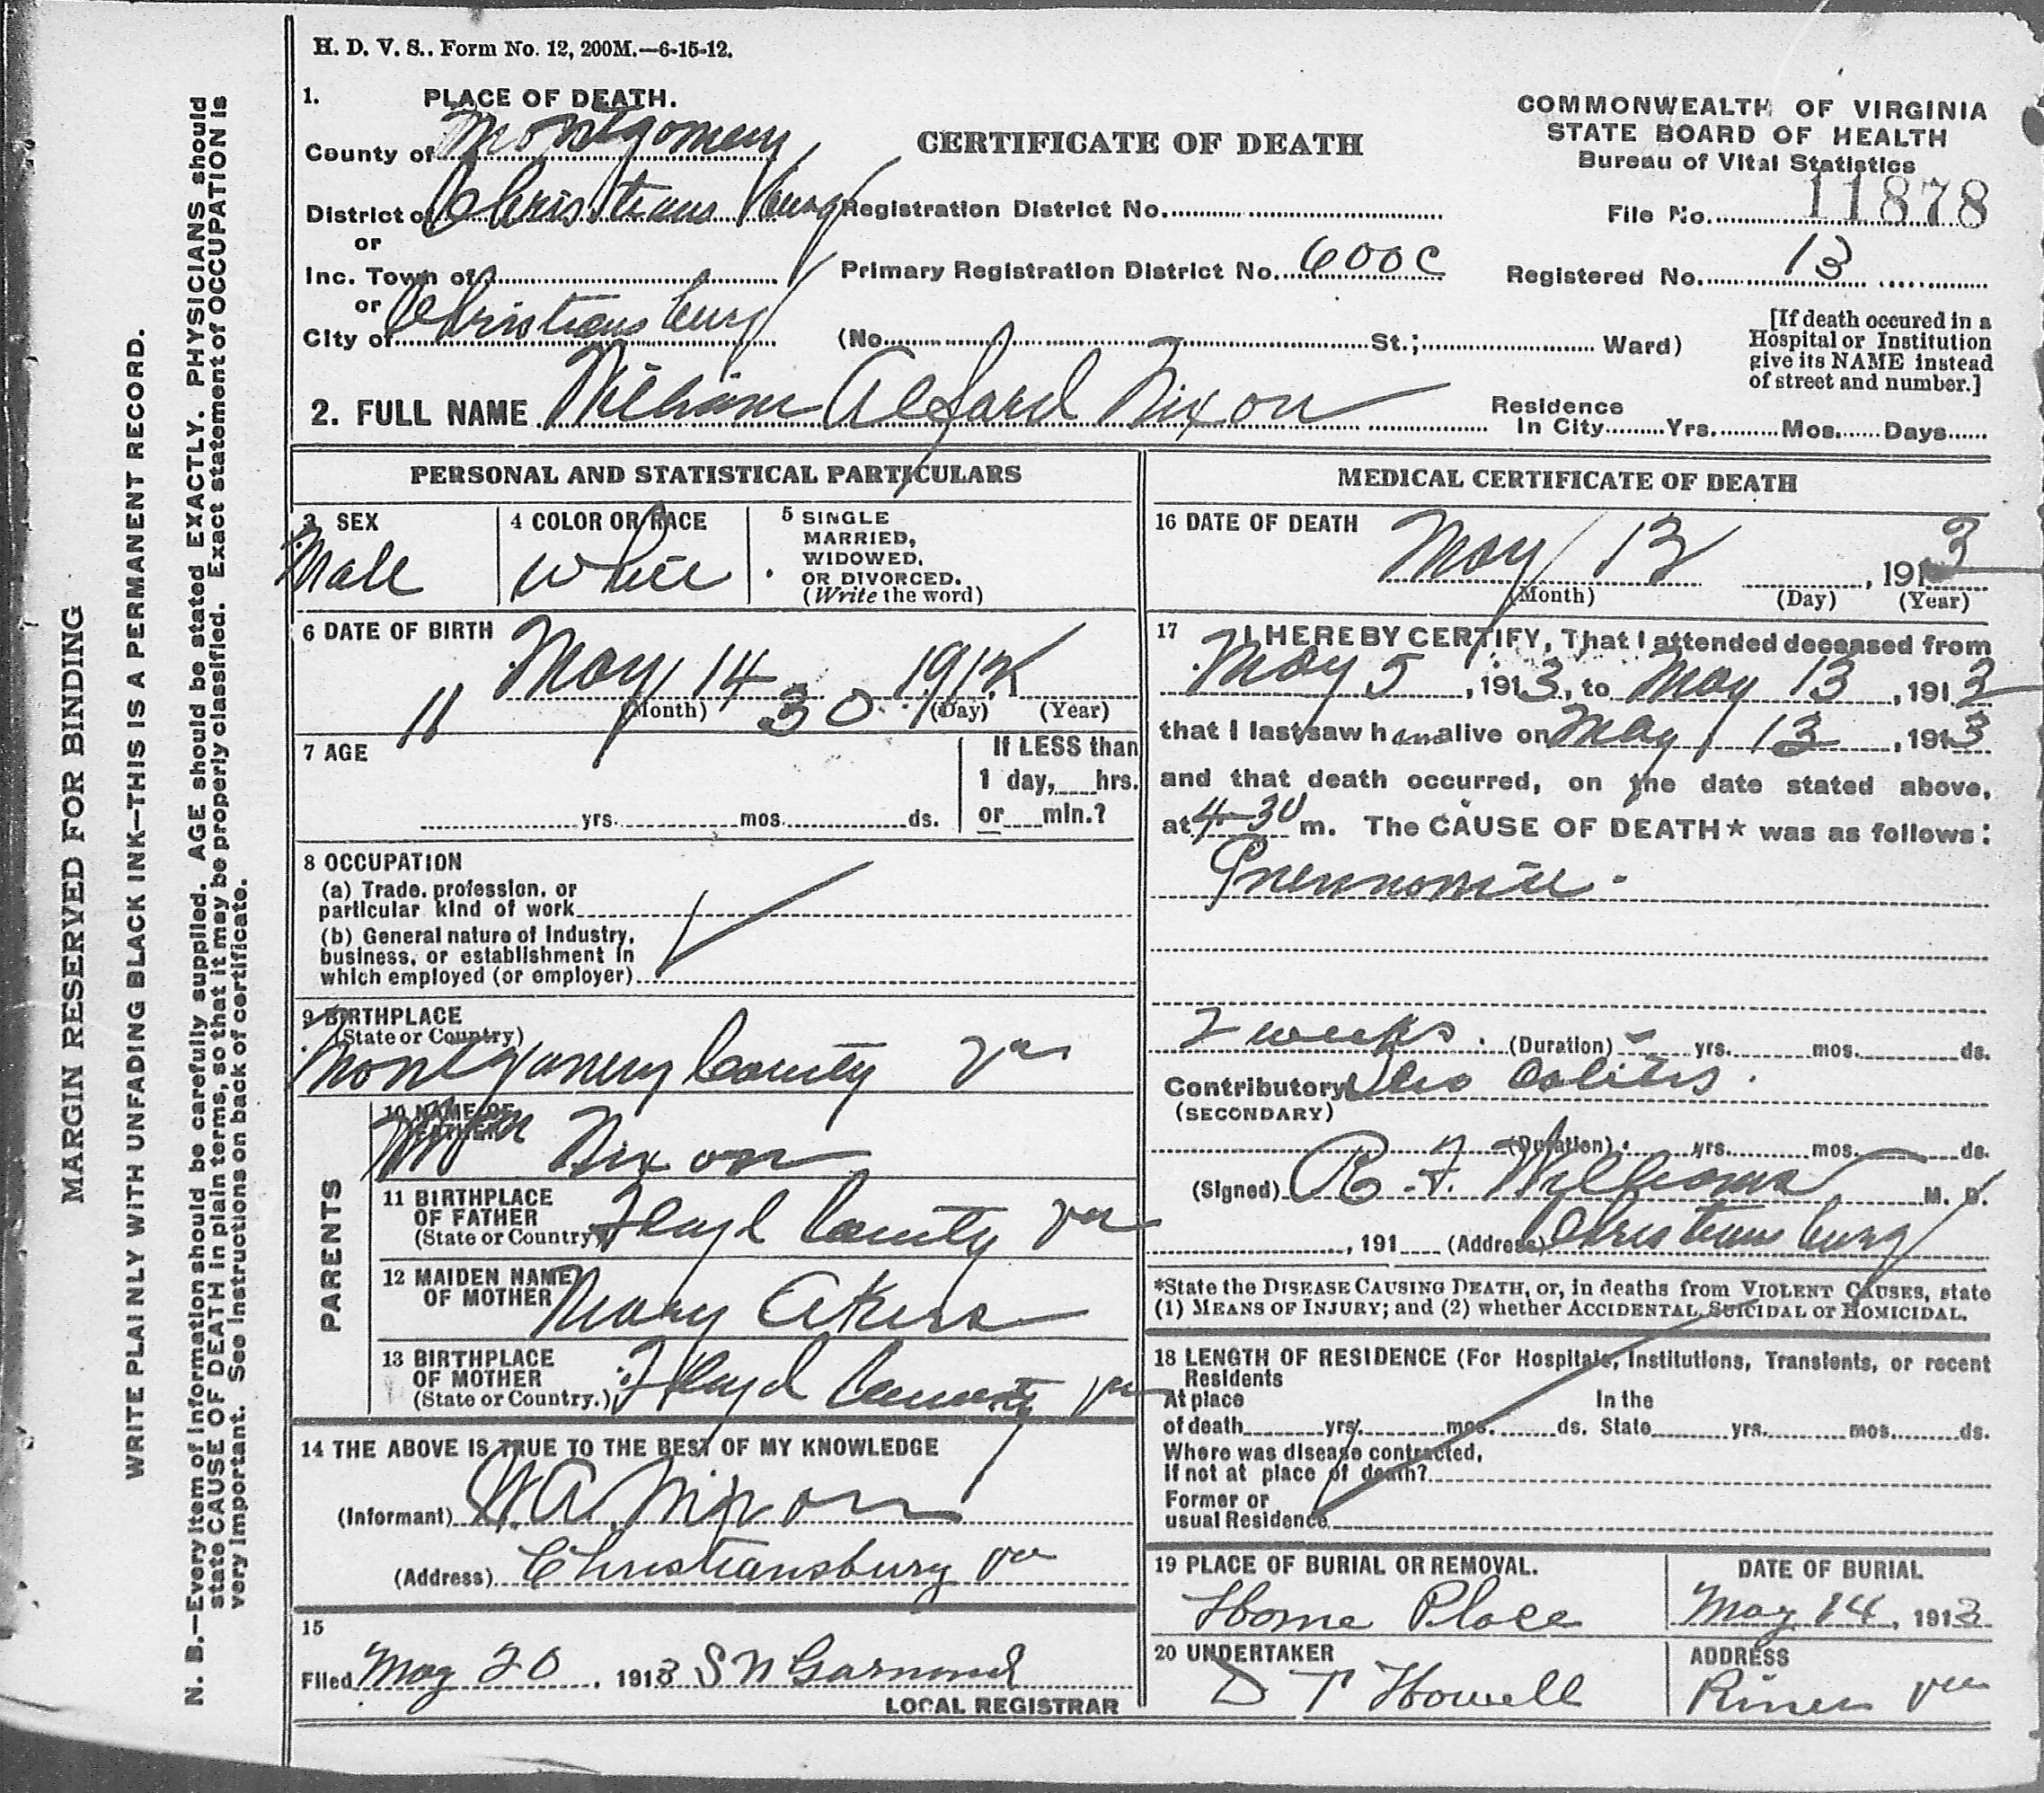 H. D. V. S., Form No. 12, 200M.—6-15-12.
1. PLACE OF DEATH.
County of Montgomery
District of Christiansburg
or
Inc. Town of
or
City of Christiansburg
CERTIFICATE OF DEATH
Registration District No.
Primary Registration District No. 600C
(No. St.; Ward)
COMMONWEALTH OF VIRGINIA
STATE BOARD OF HEALTH
Bureau of Vital Statistics
File No. 11878
Registered No. 13
[If death occured in a
Hospital or Institution
give its NAME instead
of street and number.]
2. FULL NAME William Alford Nixon
Residence
In City Yrs. Mos. Days
PERSONAL AND STATISTICAL PARTICULARS
3 SEX
Male
4 COLOR OR RACE
White
5 SINGLE
MARRIED,
WIDOWED,
OR DIVORCED.
(Write the word)
6 DATE OF BIRTH
May 14 1912
(Month) (Day) (Year)
11 30
7 AGE
yrs. mos. ds.
If LESS than
1 day, hrs.
or min.?
8 OCCUPATION
(a) Trade, profession, or
particular kind of work
(b) General nature of Industry,
business, or establishment in
which employed (or employer)
9 BIRTHPLACE
(State or Country)
Montgomery County Va
PARENTS
10 NAME OF
FATHER
Nixon
11 BIRTHPLACE
OF FATHER
(State or Country) Floyd County Va
12 MAIDEN NAME
OF MOTHER Mary Akers
13 BIRTHPLACE
OF MOTHER
(State or Country.) Floyd County Va
14 THE ABOVE IS TRUE TO THE BEST OF MY KNOWLEDGE
(Informant) W. A. Nixon
(Address) Christiansburg Va
15
Filed May 20, 1913 S N Garmond
LOCAL REGISTRAR
MEDICAL CERTIFICATE OF DEATH
16 DATE OF DEATH
May 13, 1913
(Month) (Day) (Year)
17 I HEREBY CERTIFY, That I attended deceased from
May 5, 1913, to May 13, 1913
that I last saw him alive on May 13, 1913
and that death occurred, on the date stated above,
at 4-30 m. The CAUSE OF DEATH* was as follows:
Pneumonia.
2 weeks. (Duration) yrs. mos. ds.
Contributory Ileo Colitis.
(SECONDARY)
(Duration) yrs. mos. ds.
(Signed) R. F. Williams M. D.
, 191 (Address) Christiansburg
*State the DISEASE CAUSING DEATH, or, in deaths from VIOLENT CAUSES, state
(1) MEANS OF INJURY; and (2) whether ACCIDENTAL, SUICIDAL or HOMICIDAL.
18 LENGTH OF RESIDENCE (For Hospitals, Institutions, Transients, or recent
Residents
At place In the
of death yrs. mos. ds. State yrs. mos. ds.
Where was disease contracted,
If not at place of death?
Former or
usual Residence
19 PLACE OF BURIAL OR REMOVAL.
Home Place
DATE OF BURIAL
May 14, 1913
20 UNDERTAKER
D T Howell
ADDRESS
Riner Va
MARGIN RESERVED FOR BINDING
WRITE PLAINLY WITH UNFADING BLACK INK—THIS IS A PERMANENT RECORD.
N. B.—Every item of information should be carefully supplied. AGE should be stated EXACTLY. PHYSICIANS should
state CAUSE OF DEATH in plain terms, so that it may be properly classified. Exact statement of OCCUPATION is
very important. See instructions on back of certificate.